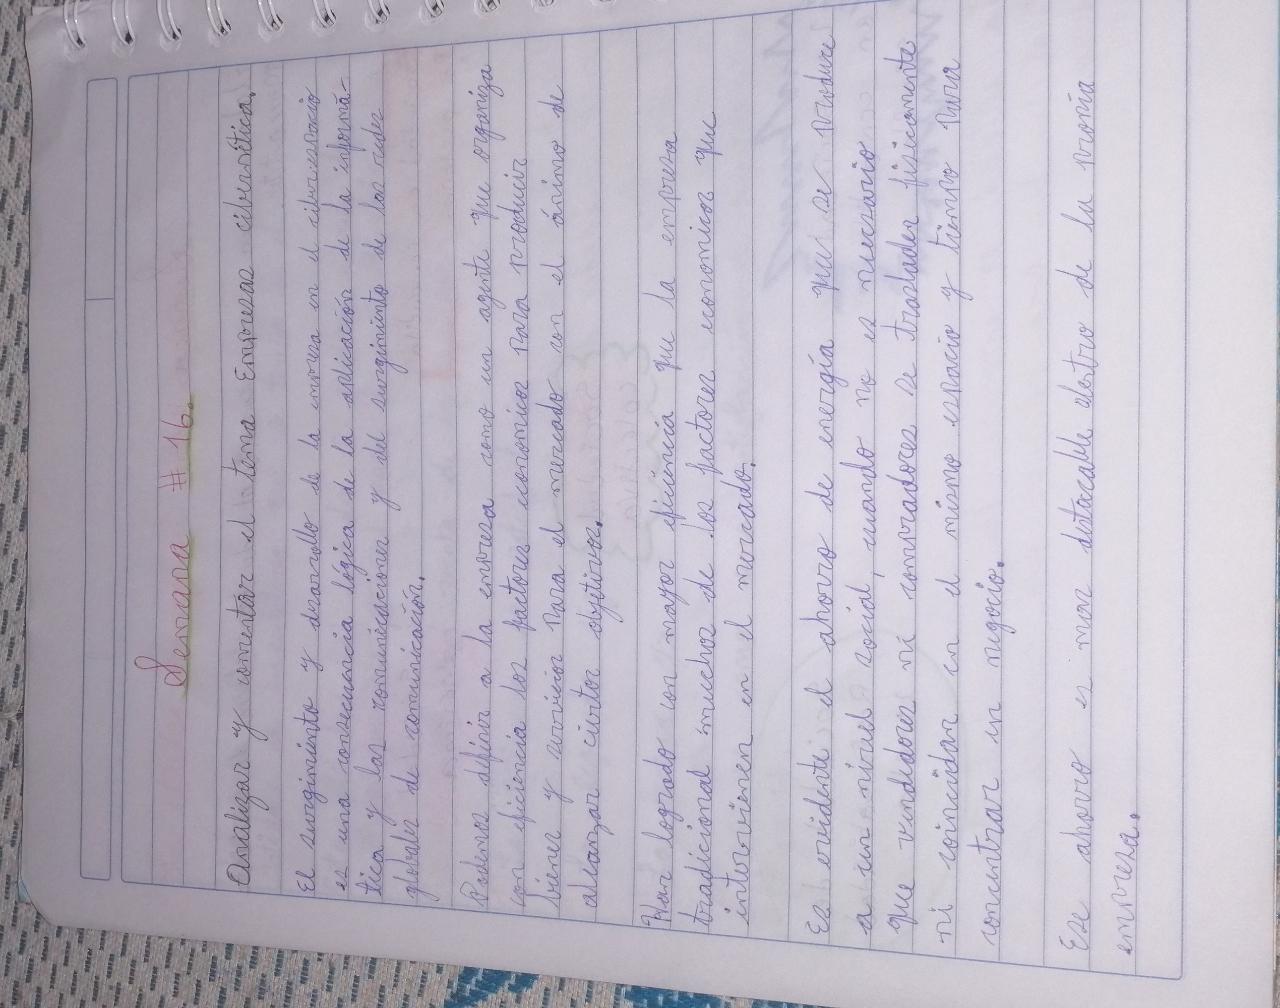 Semana # 16.
Analizar y comentar el tema Empresas cibernética.
El surgimiento y desarrollo de la empresa en el ciberespacio
es una consecuencia lógica de la aplicación de la informá-
tica y las comunicaciones y del surgimiento de las redes
globales de comunicación.
Podemos definir a la empresa como un agente que organiza
con eficiencia los factores economicos para producir
bienes y servicios para el mercado con el ánimo de
alcanzar ciertos objetivos.
Han logrado con mayor eficiencia que la empresa
tradicional muchos de los factores economicos que
intervienen en el mercado.
Es evidente el ahorro de energía que se produce
a un nivel social, cuando no es necesario
que vendedores ni compradores se trasladen fisicamente
ni coincidan en el mismo espacio y tiempo para
concentrar un negocio.
Ese ahorro es mas destacable dentro de la propia
empresa.